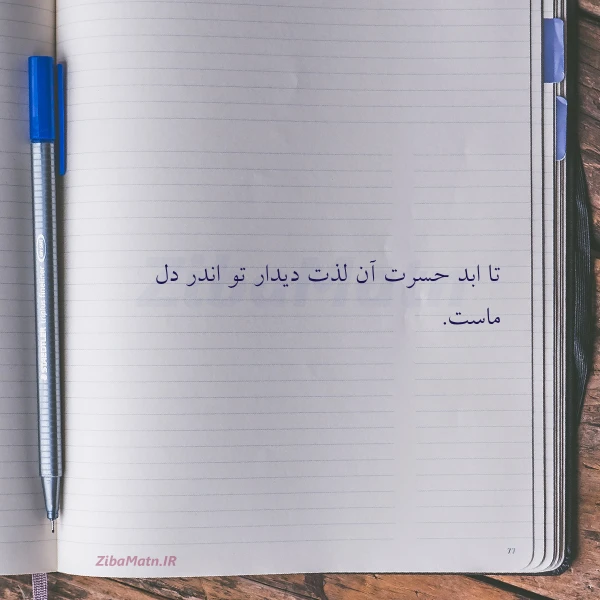 تا ابد حسرت آن لذت دیدار تو اندر دل
ماست.
77
ZibaMatn.IR